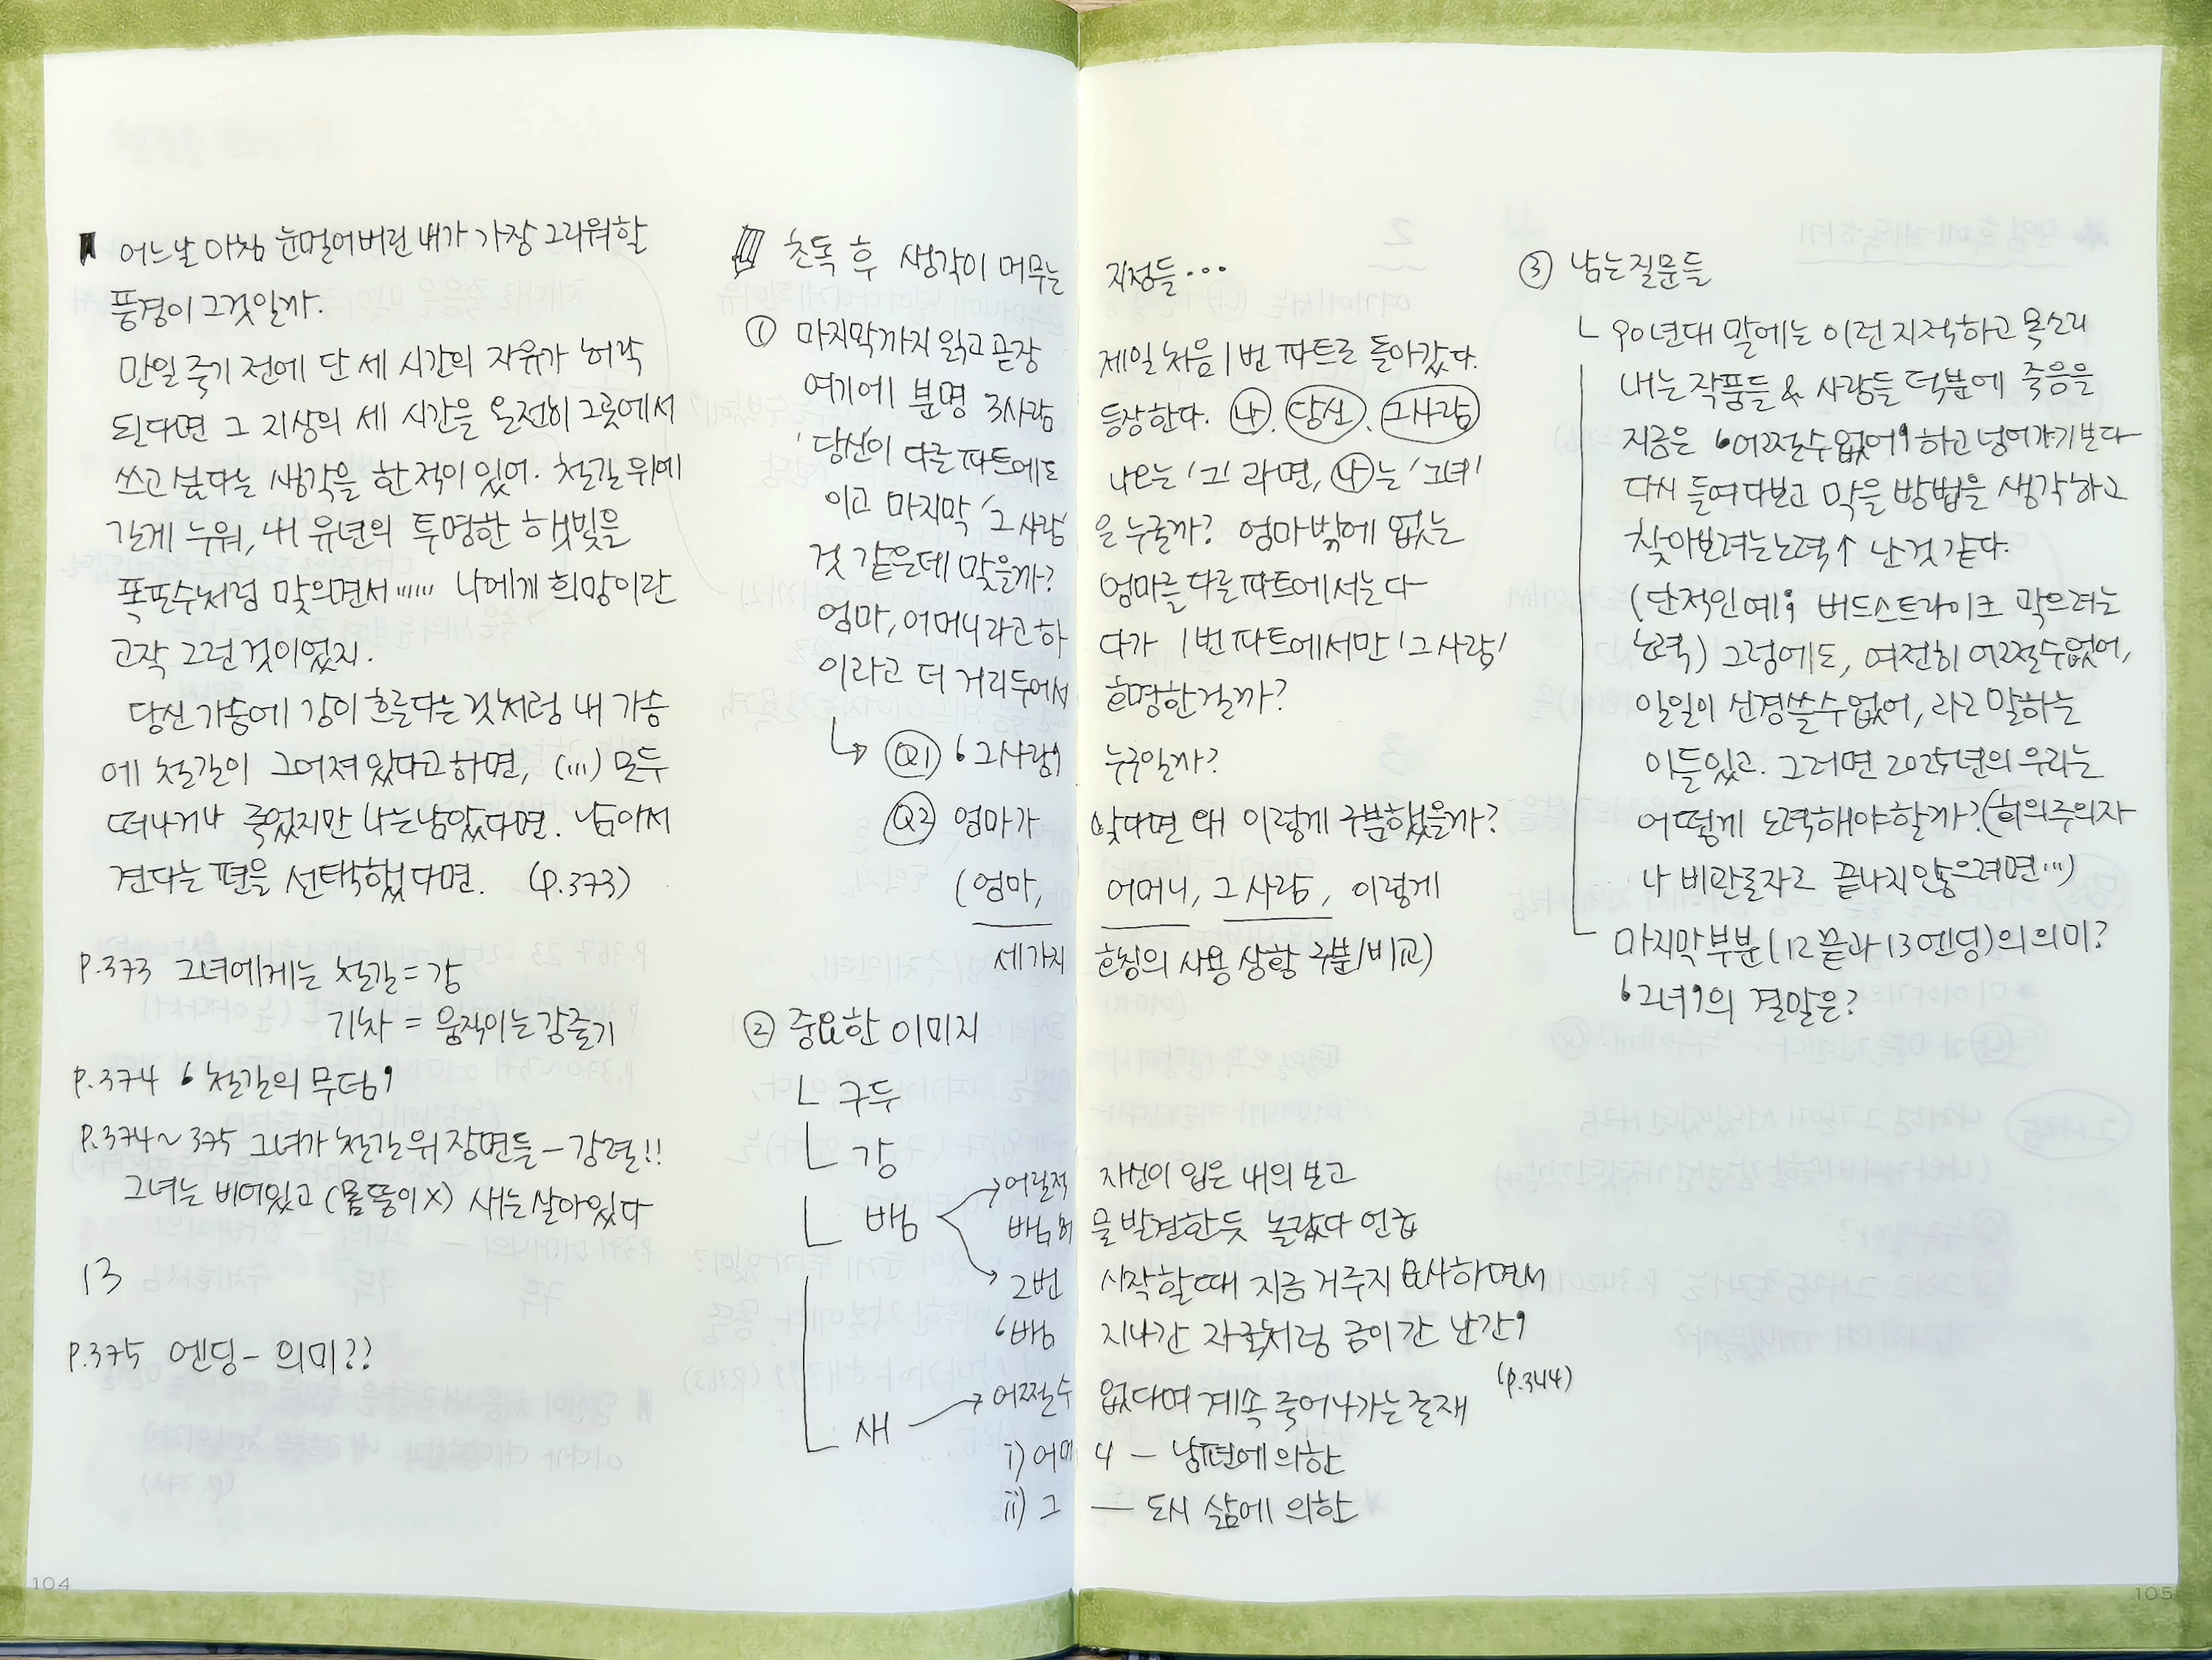 어느날 아침 눈멀어버린 내가 가장 그리워할
풍경이 그것일까.
만일 죽기 전에 단 세 시간의 자유가 허락
된다면 그 지상의 세 시간을 온전히 그곳에서
쓰고 싶다는 생각을 한 적이 있어. 철길 위에
길게 누워, 내 유년의 투명한 햇빛을
폭포수처럼 맞으면서…… 나에게 희망이란
고작 그런 것이었지.
당신 가슴에 강이 흐른다는 것처럼 내 가슴
에 철길이 그어져 있다고 하면, (…) 모두
떠나거나 죽었지만 나는 남았다면. 남아서
견디는 편을 선택했다면. (p.373)
P.373 그녀에게는 철길 = 강
기차 = 움직이는 강줄기
P.374 '철길의 무덤'
P.374~375 그녀가 철길 위 장면들 - 강렬!!
그녀는 비어있고 (몸뚱이X) 새는 살아있다
13
P.375 엔딩 - 의미??
초독 후 생각이 머무는 지점들...
① 마지막까지 읽고 곧장 제일 처음 1번 파트로 돌아갔다.
여기에 분명 3사람 등장한다. 나, 당신, 그사람
'당신'이 다른 파트에도 나오는 '그' 라면, 나는 '그녀'
이고 마지막 '그 사람'은 누굴까? 엄마밖에 없는
것 같은데 맞을까? 엄마를 다른 파트에서는 다
엄마, 어머니라고 하다가 1번 파트에서만 '그 사람'
이라고 더 거리두어서 호명한걸까?
Q1 '그사람' 누구일까?
Q2 엄마가 맞다면 왜 이렇게 구분했을까?
(엄마, 어머니, 그 사람, 이렇게
세가지 호칭의 사용 상황 구분/비교)
② 중요한 이미지
ㄴ 구두
ㄴ 강
ㄴ 뱀 → 어릴적 자신이 입은 내의 보고
뱀허물 발견한 듯 놀랐다 언급
→ 2번 시작할때 지금 거주지 묘사하면서
'뱀 지나간 자국처럼 금이 간 난간'
(p.344)
ㄴ 새 → 어쩔수 없다며 계속 죽어나가는 존재
i) 어머니 - 남편에 의한
ii) 그 - 도시 삶에 의한
③ 남는 질문들
ㄴ 90년대 말에는 이런 지적하고 목소리
내는 작품들 & 사람들 덕분에 죽음을
지금은 '어쩔수없어' 하고 넘어가기보다
다시 들여다보고 막을 방법을 생각하고
찾아보려는 노력↑ 난 것 같다.
(단적인 예; 버드스트라이크 막으려는
노력) 그럼에도, 여전히 어쩔수없어,
일일이 신경쓸수없어, 라고 말하는
이들있고. 그러면 2025년의 우리는
어떻게 노력해야할까? (회의주의자
나 비관론자로 끝나지 않으려면…)
ㄴ 마지막부분 (12 끝과 13 엔딩)의 의미?
'그녀'의 결말은?
104
105